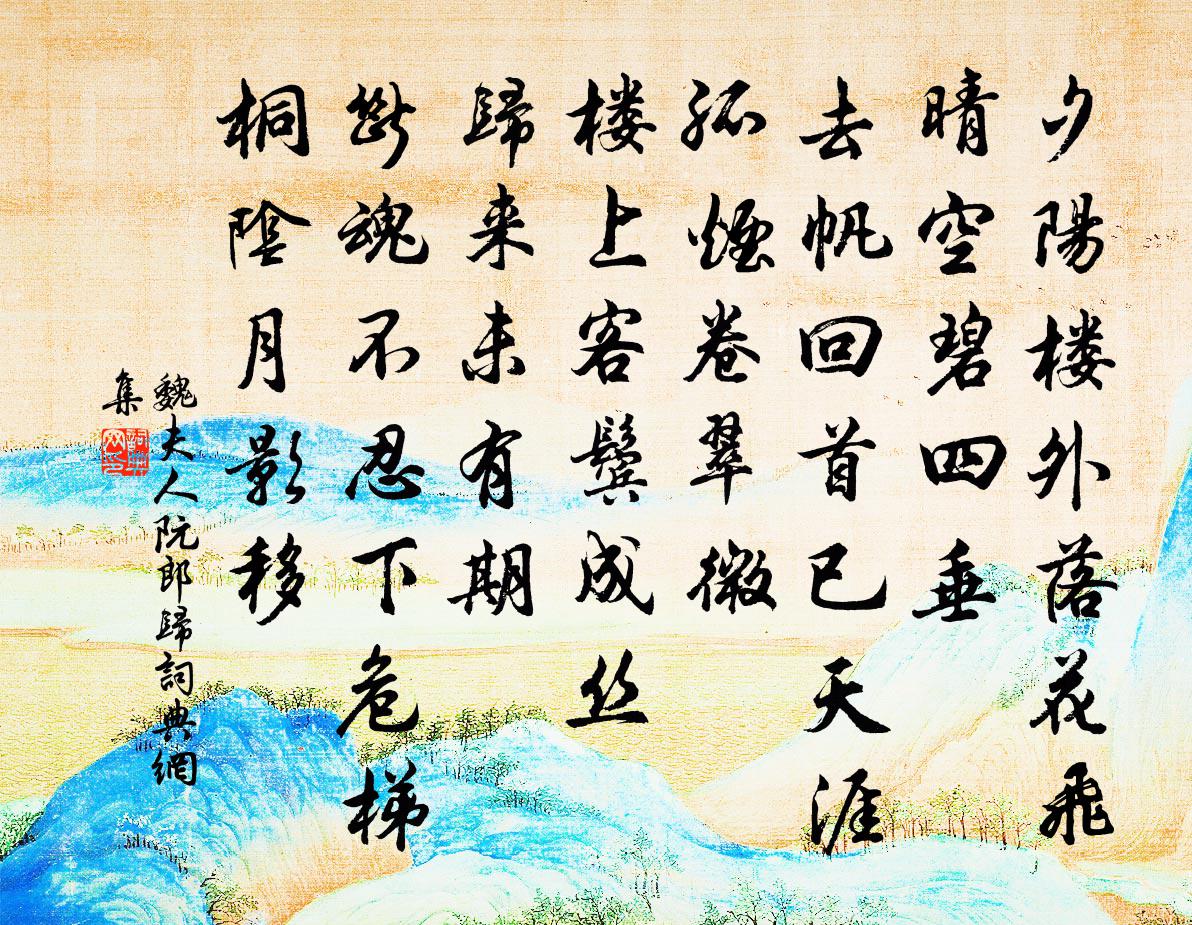 夕陽楼外落花飛
晴空碧四垂
去帆回首已天涯
孤煙卷翠微
楼上客鬓成丝
歸来未有期
断魂不忍下危梯
桐陰月影移
魏夫人阮郎歸詞典網
集